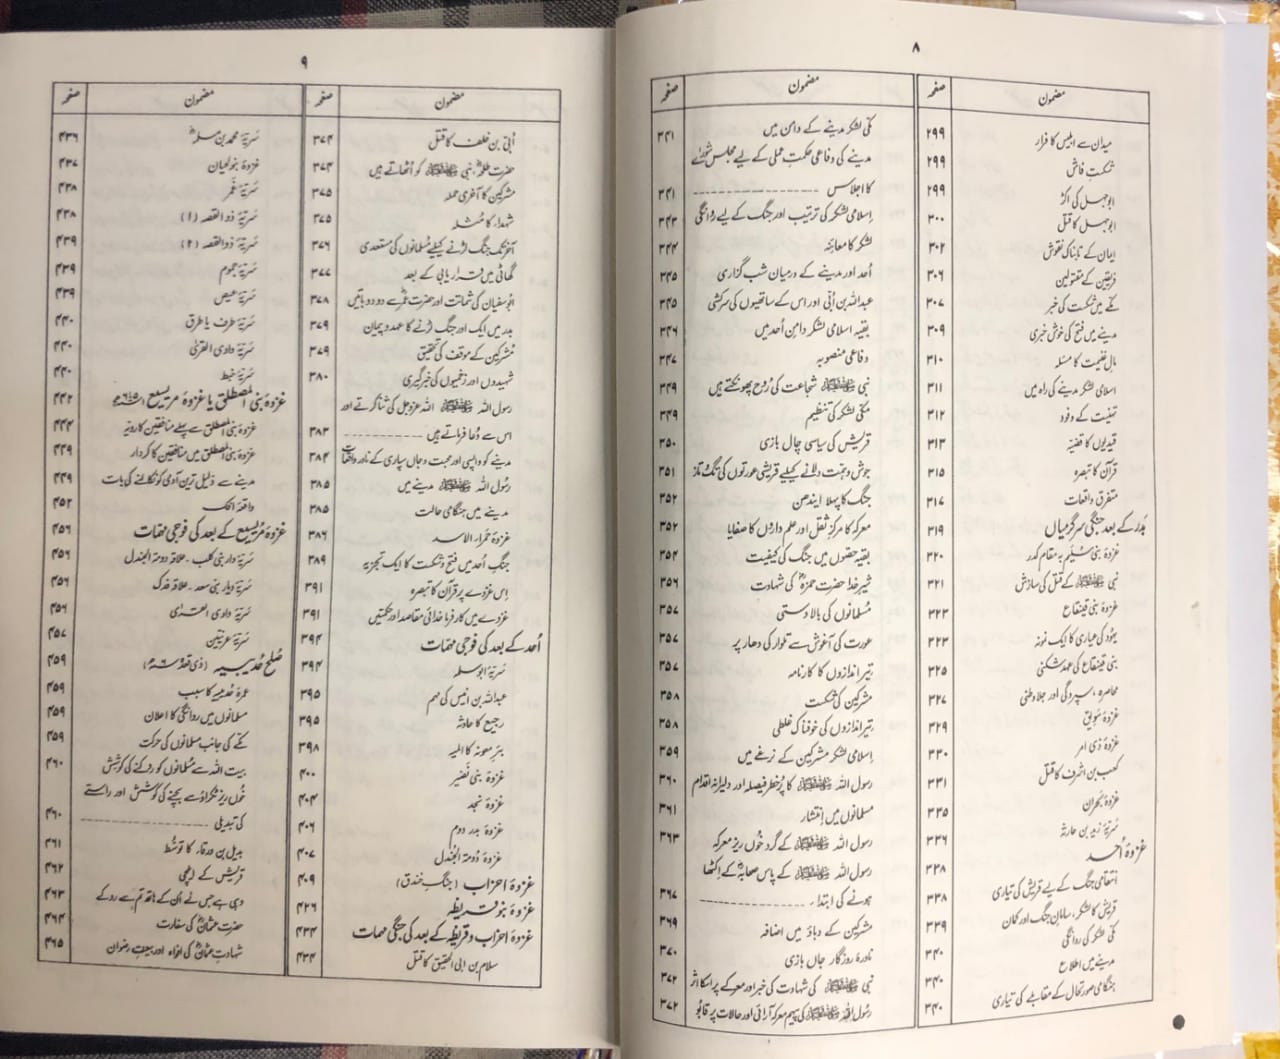 ۸
مضمون صفحہ
میدان سے ابلیس کا فرار ۲۹۹
شکستِ فاش ۲۹۹
ابوجہل کی اکڑ ۲۹۹
ابوجہل کا قتل ۳۰۰
ایمان کے تابناک نقوش ۳۰۲
فریقین کے مقتولین ۳۰۶
مکے میں شکست کی خبر ۳۰۷
مدینے میں فتح کی خوش خبری ۳۰۹
مالِ غنیمت کا مسئلہ ۳۱۰
اسلامی لشکر مدینے کی راہ میں ۳۱۱
تہنیت کے وفود ۳۱۲
قیدیوں کا قضیہ ۳۱۳
قرآن کا تبصرہ ۳۱۵
متفرق واقعات ۳۱۷
بدر کے بعد جنگی سرگرمیاں ۳۱۹
غزوۂ بنی سُلیم بہ مقام کدر ۳۲۰
نبی ﷺ کے قتل کی سازش ۳۲۱
غزوۂ بنی قینقاع ۳۲۳
یہود کی عیاری کا ایک نمونہ ۳۲۳
بنی قینقاع کی عہد شکنی ۳۲۵
محاصرہ، سپردگی اور جلاوطنی ۳۲۷
غزوۂ سَویق ۳۲۹
غزوۂ ذی امر ۳۳۰
کعب بن اشرف کا قتل ۳۳۱
غزوۂ بحران ۳۳۵
سریّۂ زید بن حارثہ ۳۳۶
غزوۂ اُحد ۳۳۸
انتقامی جنگ کے لیے قریش کی تیاری ۳۳۸
قریش کا لشکر، سامانِ جنگ اور کمان ۳۳۹
مکی لشکر کی روانگی ۳۴۰
مدینے میں اطلاع
ہنگامی صورتحال کے مقابلے کی تیاری ۳۴۰
مضمون صفحہ
مکی لشکر مدینے کے دامن میں ۳۴۱
مدینے کی دفاعی حکمتِ عملی کے لیے مجلسِ شوریٰ
کا اجلاس ۳۴۱
اسلامی لشکر کی ترتیب اور جنگ کے لیے روانگی ۳۴۳
لشکر کا معائنہ ۳۴۴
اُحد اور مدینے کے درمیان شب گزاری ۳۴۵
عبداللہ بن اُبی اور اس کے ساتھیوں کی سرکشی ۳۴۵
بقیہ اسلامی لشکر دامنِ اُحد میں ۳۴۶
دفاعی منصوبہ ۳۴۷
نبی ﷺ شجاعت کی رُوح پھونکتے ہیں ۳۴۹
مکی لشکر کی تنظیم ۳۴۹
قریش کی سیاسی چال بازی ۳۵۰
جوش و ہمت دلانے کیلئے قریشی عورتوں کی تگ و تاز ۳۵۱
جنگ کا پہلا ایندھن ۳۵۲
معرکہ کا مرکزِ ثقل اور علم داروں کا صفایا ۳۵۲
بقیہ حصّوں میں جنگ کی کیفیت ۳۵۴
شیرِ خدا حضرت حمزہؓ کی شہادت ۳۵۶
مُسلمانوں کی بالادستی ۳۵۷
عورت کی آغوش سے تلوار کی دھار پر ۳۵۷
تیراندازوں کا کارنامہ ۳۵۷
مشرکین کی شکست ۳۵۸
تیراندازوں کی خوفناک غلطی ۳۵۸
اسلامی لشکر مشرکین کے نرغے میں ۳۵۹
رسول اللہ ﷺ کا پُرخطر فیصلہ اور دلیرانہ اقدام ۳۶۰
مسلمانوں میں انتشار ۳۶۱
رسول اللہ ﷺ کے گرد خوں ریز معرکہ ۳۶۳
رسول اللہ ﷺ کے پاس صحابہؓ کے اکٹھا
ہونے کی ابتداء ۳۶۷
مشرکین کے دباؤ میں اضافہ ۳۶۹
نادرۂ روزگار جاں بازی ۳۷۰
نبی ﷺ کی شہادت کی خبر اور معرکے پر اسکا اثر ۳۷۲
رسول اللہ ﷺ کی پیہم معرکہ آرائی اور حالات پر قابو ۳۷۲
۹
مضمون صفحہ
اُبی بن خلف کا قتل ۳۷۴
حضرت طلحہؓ، نبی ﷺ کو اُٹھاتے ہیں ۳۷۴
مشرکین کا آخری حملہ ۳۷۵
شہداء کا مُثلہ ۳۷۵
آخر تک جنگ لڑنے کیلئے مُسلمانوں کی مستعدی ۳۷۶
گھاٹی میں قرار یابی کے بعد ۳۷۷
ابوسفیان کی شماتت اور حضرت عمرؓ سے دو دو باتیں ۳۷۸
بدر میں ایک اور جنگ لڑنے کا عہد و پیمان ۳۷۹
مُشرکین کے موقف کی تحقیق ۳۷۹
شہیدوں اور زخمیوں کی خبرگیری ۳۸۰
رسول اللہ ﷺ اللہ عزوجل کی ثنا کرتے اور
اس سے دُعا فرماتے ہیں ۳۸۳
مدینے کو واپسی اور محبت و جاں سپاری کے نادر واقعات ۳۸۴
رسول اللہ ﷺ مدینے میں ۳۸۵
مدینے میں ہنگامی حالت ۳۸۵
غزوۂ حمراء الاسد ۳۸۶
جنگِ اُحد میں فتح و شکست کا ایک تجزیہ ۳۸۹
اِس غزوے پر قرآن کا تبصرہ ۳۹۱
غزوے میں کارفرما خدائی مقاصد اور حکمتیں ۳۹۱
اُحد کے بعد کی فوجی مہمات ۳۹۴
سریّۂ ابوسلمہ ۳۹۴
عبداللہ بن انیس کی مہم ۳۹۵
رجیع کا حادثہ ۳۹۵
بئر معونہ کا المیہ ۳۹۸
غزوۂ بنی نضیر ۴۰۰
غزوۂ نجد ۴۰۴
غزوۂ بدر دوم ۴۰۶
غزوۂ دُومۃ الجندل ۴۰۷
غزوۂ احزاب (جنگِ خندق) ۴۰۹
غزوۂ بنو قریظہ ۴۲۶
غزوۂ احزاب و قریظہ کے بعد کی جنگی مہمات ۴۳۴
سلام بن ابی الحقیق کا قتل ۴۳۴
مضمون صفحہ
سَریّۂ محمد بن مسلمہؓ ۴۳۶
غزوۂ بنو لحیان ۴۳۷
سَریّۂ غمر ۴۳۸
سَریّۂ ذو القصہ (۱) ۴۳۸
سَریّۂ ذو القصہ (۲) ۴۳۹
سَریّۂ جموم ۴۳۹
سَریّۂ عیص ۴۳۹
سَریّۂ طرف یا طرق ۴۴۰
سَریّۂ وادی القریٰ ۴۴۰
سَریّۂ خبط ۴۴۰
غزوۂ بنی المصطلق یا غزوۂ مریسیع ۴۴۲
غزوۂ بنی المصطلق سے پہلے منافقین کا رویہ ۴۴۴
غزوۂ بنی المصطلق میں منافقین کا کردار ۴۴۹
مدینے سے ذلیل ترین آدمی کو نکالنے کی بات ۴۴۹
واقعۂ افک ۴۵۲
غزوۂ مُریسیع کے بعد کی فوجی مہمات ۴۵۶
سَریّۂ دیار بنی کلب ۔ علاقہ دومۃ الجندل ۴۵۶
سَریّۂ دیار بنی سعد ۔ علاقہ فدک ۴۵۶
سَریّۂ وادی القریٰ ۴۵۶
سَریّۂ عرنیین ۴۵۷
صُلح حُدیبیہ (ذی قعدہ ۶ھ) ۴۵۹
عمرۂ حُدیبیہ کا سبب ۴۵۹
مسلمانوں میں روانگی کا اعلان ۴۵۹
مکے کی جانب مسلمانوں کی حرکت ۴۵۹
بیت اللہ سے مُسلمانوں کو روکنے کی کوشش ۴۶۰
خُوں ریز ٹکراؤ سے بچنے کی کوشش اور راستے
کی تبدیلی ۴۶۰
بدیل بن ورقاء کا توسُّط ۴۶۱
قریش کے ایلچی ۴۶۲
وہی ہے جس نے اُن کے ہاتھ تم سے روکے ۴۶۳
حضرت عثمانؓ کی سفارت ۴۶۴
شہادتِ عثمانؓ کی افواہ اور بیعتِ رضوان ۴۶۵